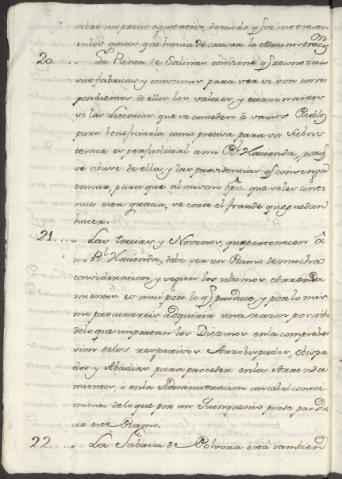 otro un precio equitativo, de modo q.e se interesen
en los gastos que havia de causar la Administraz.on
20... La Renta de Salinas conviene q.e reconozcais
sus fabricas, y consumos, para ver si son corres
pondientes de ellos los valores, y examinareis
si las licencias que se conceden à varios Pueblos
para beneficiarla como precisa para su subsis
tencia es perjudicial a mi R.l Hacienda, porq.e
se abuse de ella, y las providencias q.e convenga
tomar, para que al mismo tpo. que se les conti
nue esta gracia, se corte el fraude que puedan
hacer.
21... Las tercias, y Novenos, que pertenecen à
mi R.l Hacienda, debe ser un Ramo de mucha
consideracion, y segun los ultimos Arrenda
mientos es mui poco lo q.e produce, y por lo mis
mo procurareis adquirir una razon positiva
de lo que importan los Diezmos en la comprehen
sion de los respectivos Arzobispados, obispa
dos y Abadias para proceder en los Arrenda
mientos, ò en la Administracion con cabal conoci
miento de lo que por un Quinquenio puede produ
cir este Ramo.
22... La Fabrica de Polvora está tambien